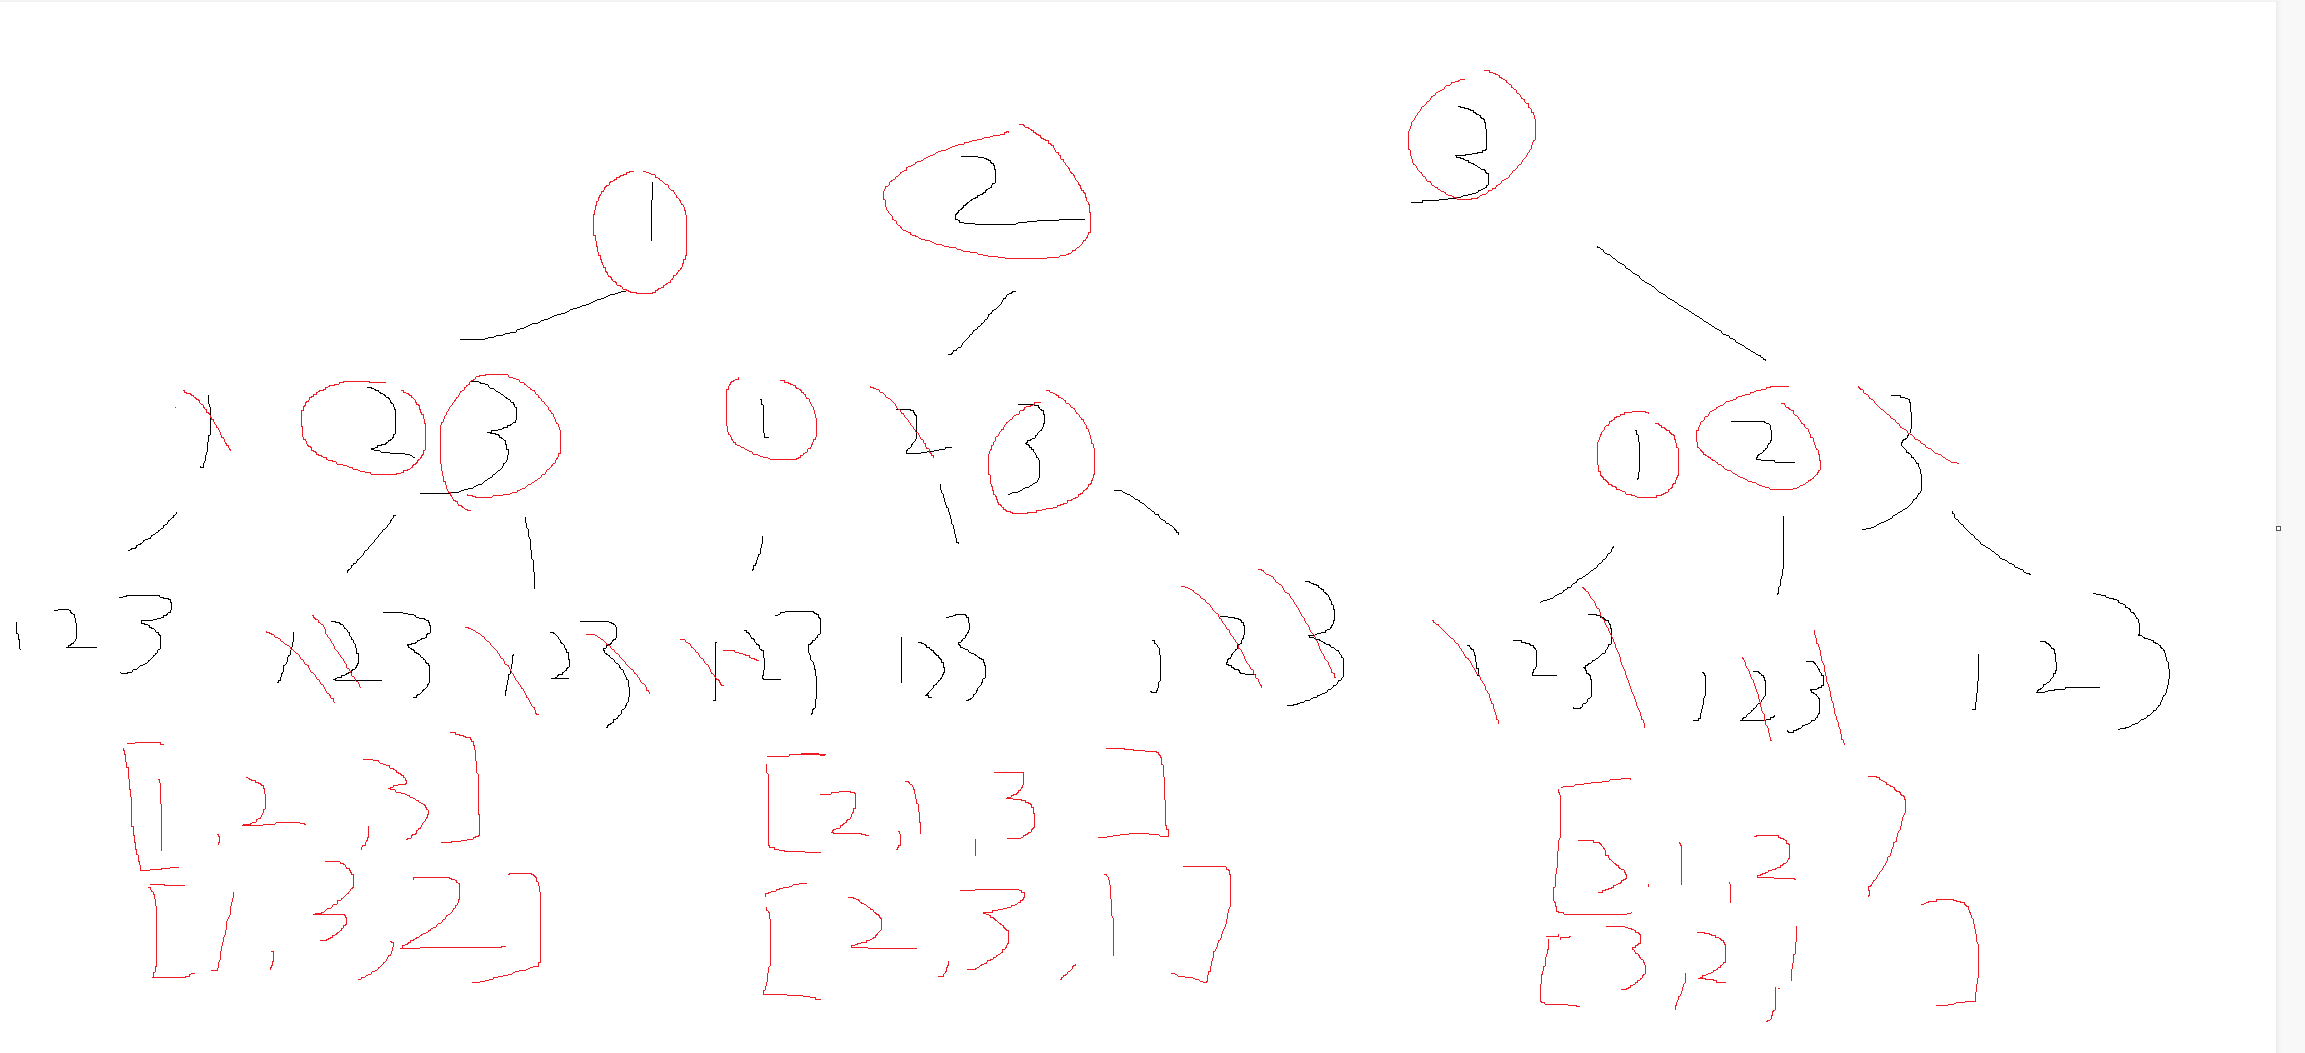 1 2 3
1 2 3 1 2 3 1 2 3
1 2 3 1 2 3 1 2 3 1 2 3 1 2 3 1 2 3 1 2 3 1 2 3 1 2 3
[1,2,3] [2,1,3] [3,1,2]
[1,3,2] [2,3,1] [3,2,1]